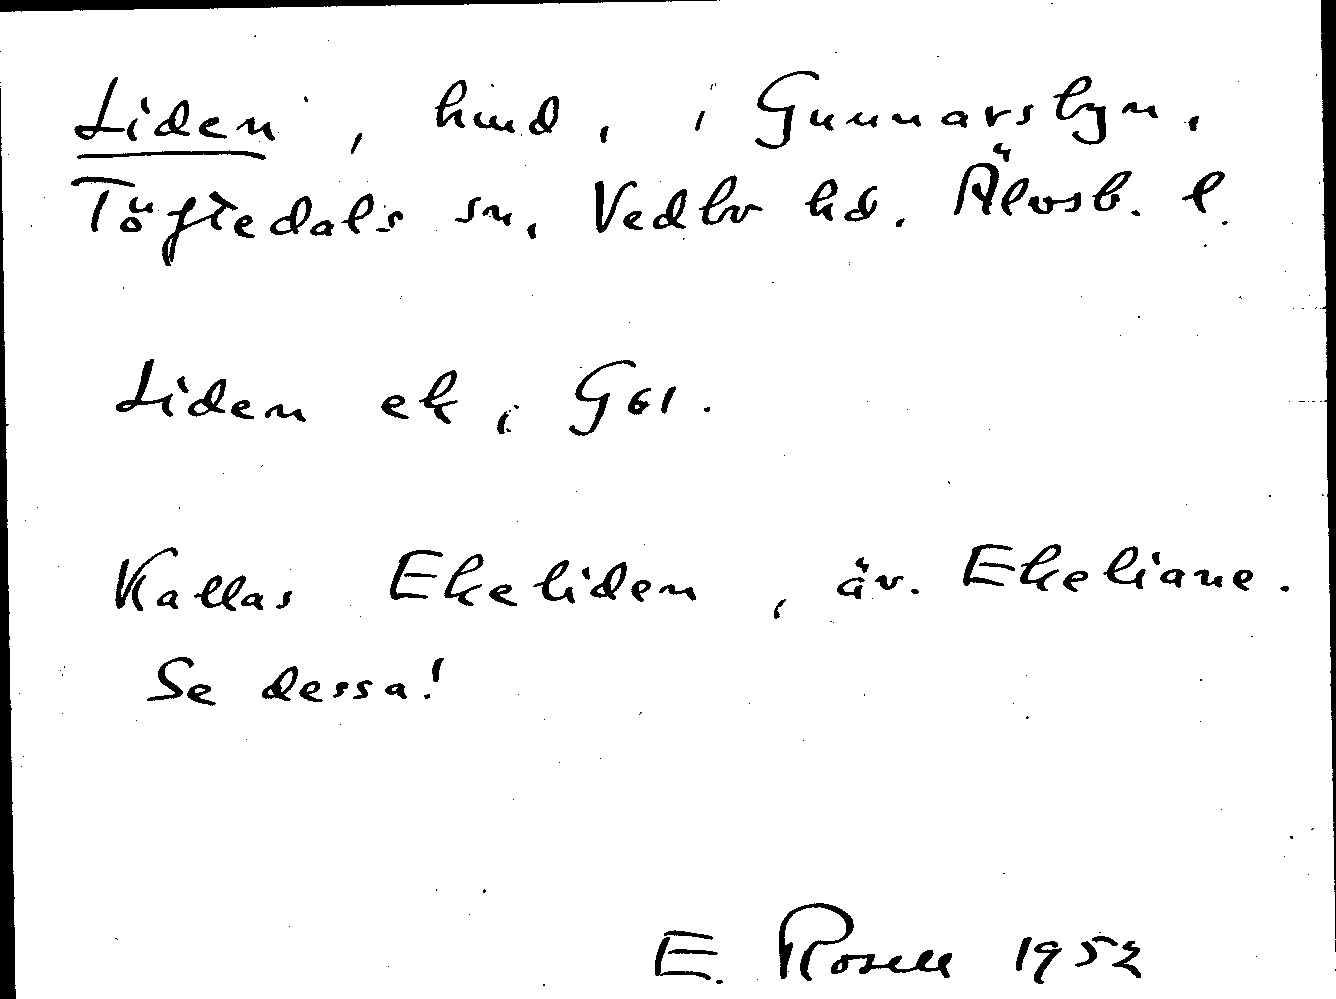 Liden, hmd, i Gunnarsbyn,
Töftedals sn, Vedbo hd. Älvsb. l.
Liden ek, G61.
Kallas Ekeliden, äv. Ekeliane.
Se dessa!
E. Rosell 1952